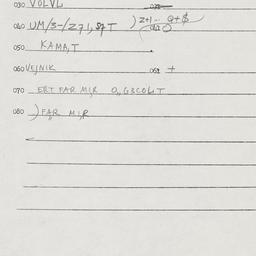 030 VOLVL
040 UM/3-/Z71,87T )Z+1- Q+$
050 KAMA,T
060 VEJNIK 061 +
070 ERT FAR MIR O,G3COLT
080 )FAR MIR